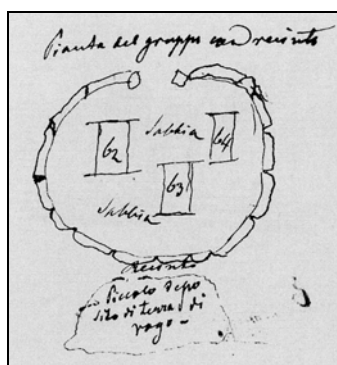 Pianta del gruppo con recinto
Sabbia
64
62
63
Sabbia
Recinto
Piccolo depo
sito di terra di
rogo -